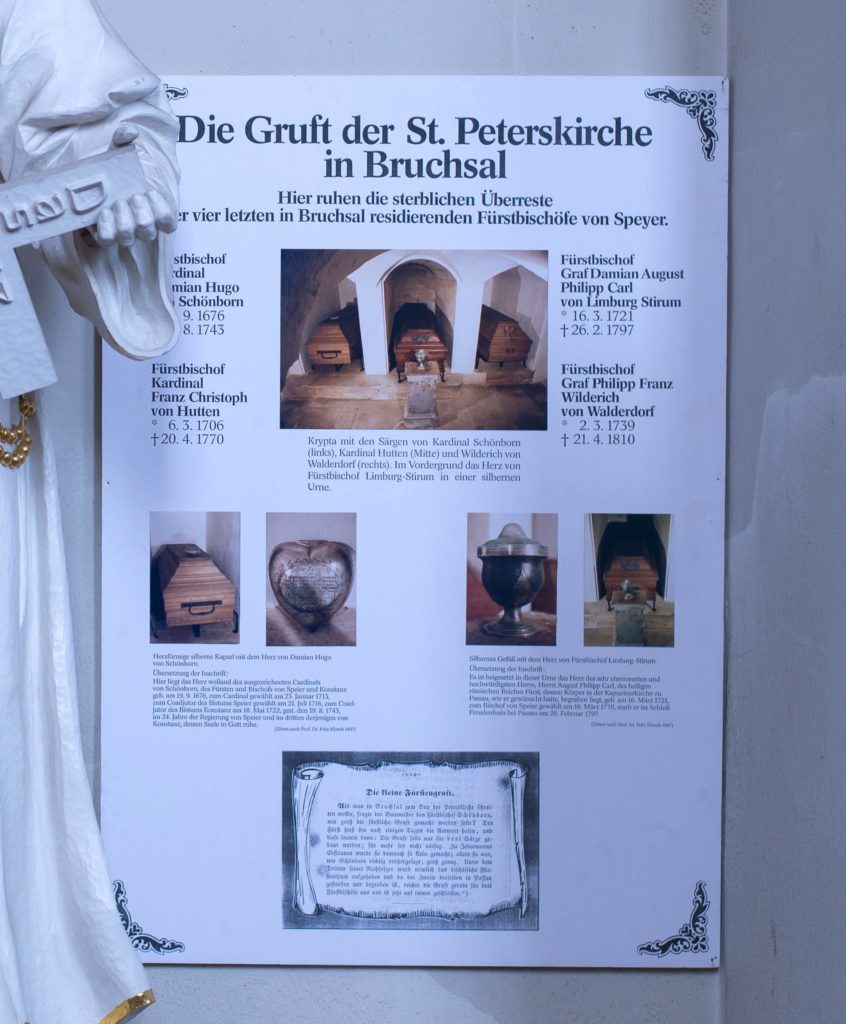 Die Gruft der St. Peterskirche
in Bruchsal
Hier ruhen die sterblichen Überreste
er vier letzten in Bruchsal residierenden Fürstbischöfe von Speyer.
stbischof
rdinal
mian Hugo
Schönborn
9. 1676
8. 1743
Fürstbischof
Kardinal
Franz Christoph
von Hutten
* 6. 3. 1706
† 20. 4. 1770
Fürstbischof
Graf Damian August
Philipp Carl
von Limburg Stirum
* 16. 3. 1721
† 26. 2. 1797
Fürstbischof
Graf Philipp Franz
Wilderich
von Walderdorf
* 2. 3. 1739
† 21. 4. 1810
Krypta mit den Särgen von Kardinal Schönborn
(links), Kardinal Hutten (Mitte) und Wilderich von
Walderdorf (rechts). Im Vordergrund das Herz von
Fürstbischof Limburg-Stirum in einer silbernen
Urne.
Herzförmige silberne Kapsel mit dem Herz von Damian Hugo
von Schönborn.
Übersetzung der Inschrift:
Hier liegt das Herz weiland des ausgezeichneten Cardinals
von Schönborn, des Fürsten und Bischofs von Speier und Konstanz
geb. am 19. 9. 1676, zum Cardinal gewählt am 23. Januar 1713,
zum Coadjutor des Bistums Speier gewählt am 21. Juli 1716, zum Coad-
jutor des Bistums Konstanz am 18. Mai 1722, gest. den 19. 8. 1743,
im 24. Jahre der Regierung von Speier und im dritten derjenigen von
Konstanz, dessen Seele in Gott ruhe.
(Zitiert nach Prof. Dr. Fritz Hirsch 1907)
Silbernes Gefäß mit dem Herz von Fürstbischof Limburg-Stirum.
Übersetzung der Inschrift:
Es ist beigesetzt in dieser Urne das Herz des sehr ehrenwerten und
hochwürdigsten Herrn, Herrn August Philipp Carl, des heiligen
römischen Reiches Fürst, dessen Körper in der Kapuzinerkirche zu
Passau, wie er gewünscht hatte, begraben liegt, geb. am 16. März 1721,
zum Bischof von Speier gewählt am 16. März 1770, starb er im Schloß
Freudenhain bei Passau am 26. Februar 1797.
(Zitiert nach Prof. Dr. Fritz Hirsch 1907)
Die kleine Fürstengruft.
Als man in Bruchsal zum Bau der Peterskirche schrei-
ten wollte, fragte der Baumeister den Fürstbischof Schönborn,
wie groß die fürstliche Gruft gemacht werden solle? Der
Fürst hieß ihn nach einigen Tagen die Antwort holen, und
diese lautete dann: Die Gruft solle nur für drei Särge ge-
baut werden; für mehr sey nicht nöthig. Zu Jedermanns
Erstaunen wurde sie demnach so klein gemacht; allein sie war,
wie Schönborn richtig vorhergesagt, groß genug. Unter dem
Dritten seiner Nachfolger ward nämlich das bischöfliche Für-
stenthum aufgehoben und da der Zweite derselben in Passau
gestorben und begraben ist, reichte die Gruft gerade für drei
Fürstbischöfe aus und ist jetzt auf immer geschlossen.